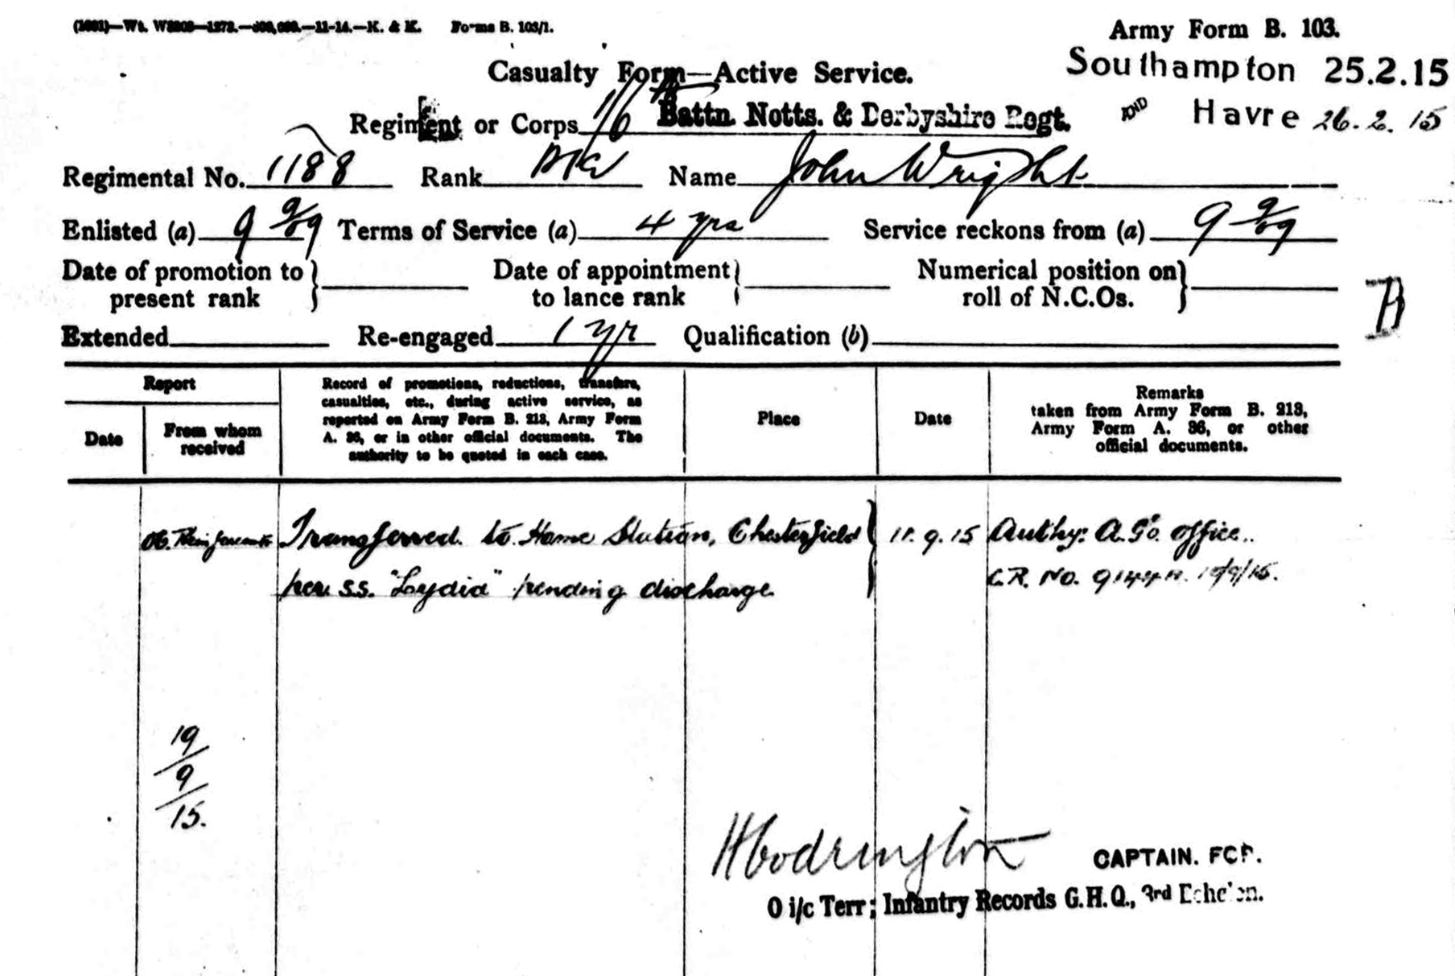 Forms B. 103/1.
Army Form B. 103.
Casualty Form—Active Service.
Southampton 25.2.15
AND Havre 26.2.15
Regiment or Corps 1/6 Battn Notts. & Derbyshire Regt.
Regimental No. 1188 Rank Name John Wright
Enlisted (a) 9 9/09 Terms of Service (a) 4 yrs Service reckons from (a) 9 9/09
Date of promotion to present rank } Date of appointment to lance rank } Numerical position on roll of N.C.Os. }
Extended Re-engaged 1 yr Qualification (b)
Report
Date
From whom received
Record of promotions, reductions, transfers,
casualties, etc., during active service, as
reported on Army Form B. 213, Army Form
A. 36, or in other official documents. The
authority to be quoted in each case.
Place
Date
Remarks
taken from Army Form B. 213,
Army Form A. 36, or other
official documents.
Transferred to Home Station, Chesterfield } 11.9.15 Authy: A.G's office..
per s.s. "Lydia" pending discharge C.R. No.
19
9
15.
HCodrington CAPTAIN. FOR.
O i/c Terr; Infantry Records G.H.Q., 3rd Echelon.